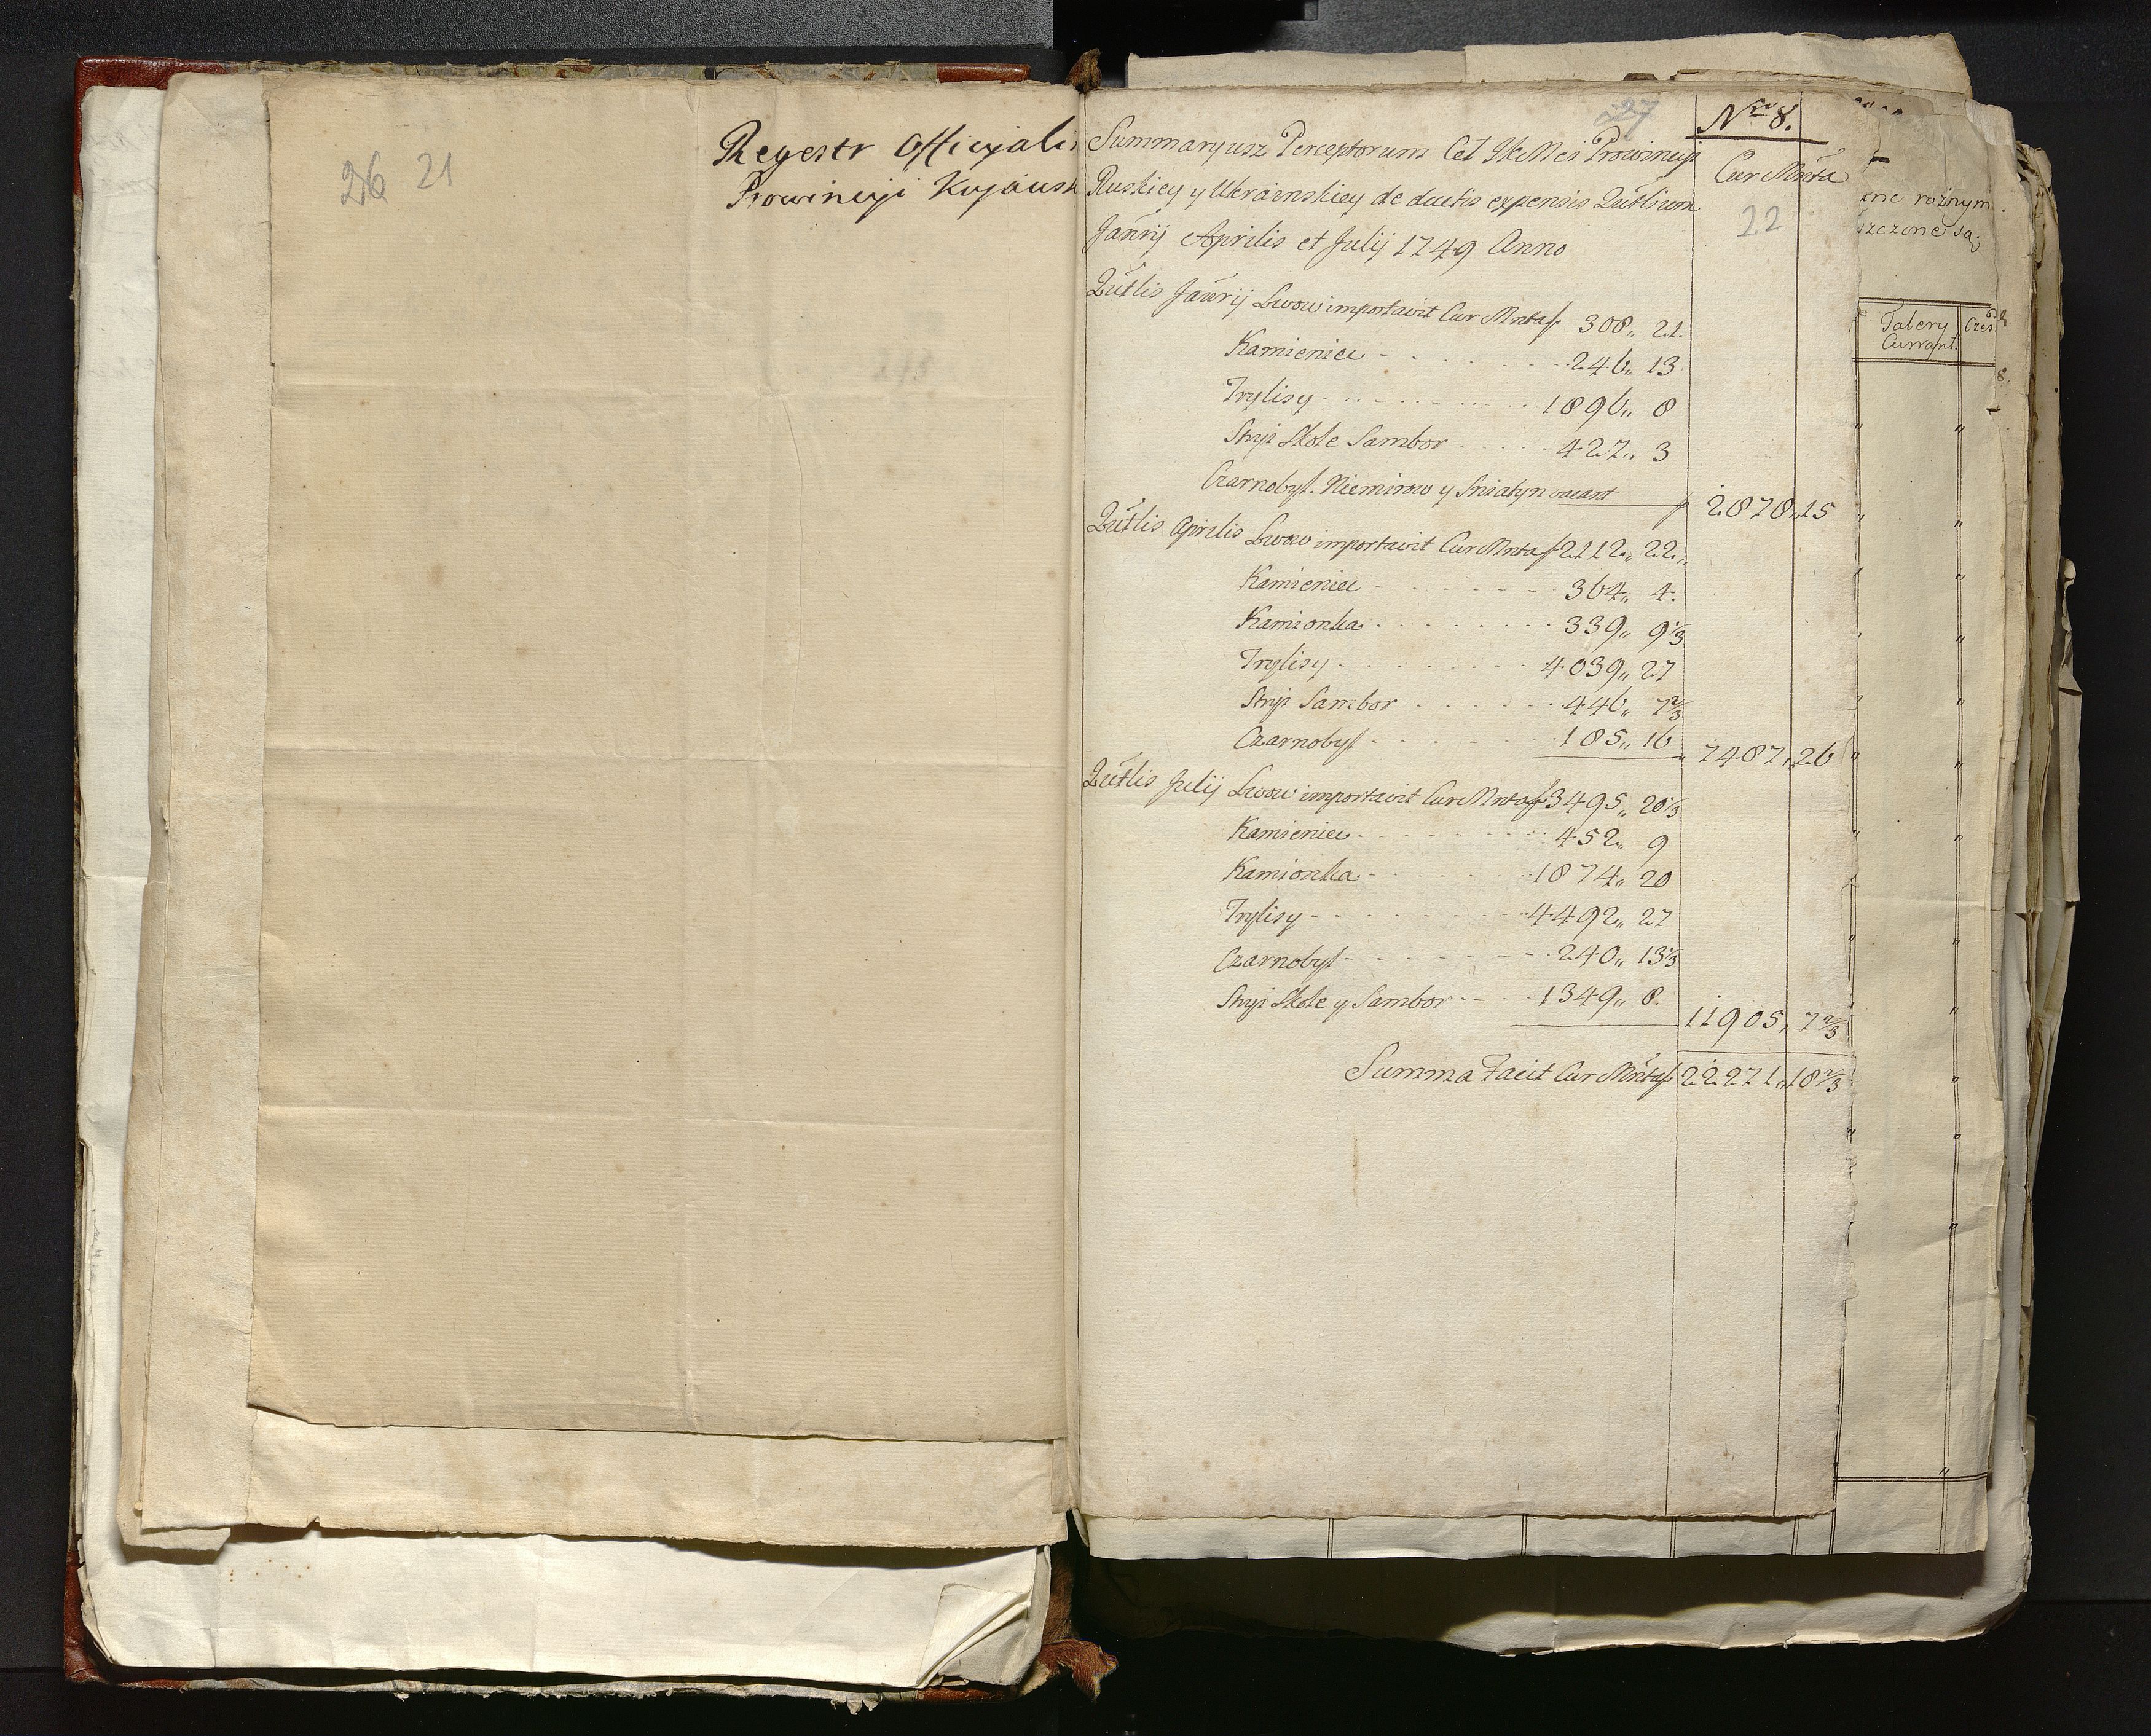 26 21
Regestr Officyalis
Prowincyi Kujawsk
27
Nro 8.
Summaryusz Perceptorum Cel SkMci Prowincyi
Cur Mñta
Ruskiey y Ukrainskiey de ductis expensis Qūtlium
22
Janrij Aprilis et Julij 1749 Anno
Qūtlis Janrij Lwow importavit Cur Mntaf 308„ 21.
Kamieniec - - - 246„ 13
Trylisy - - - 1896„ 8
Stryi Skole Sambor - - - 427„ 3
Czarnobyl. Niemirow y Sniatyn vacant f 2878„ 15
Qūtlis Aprilis Lwow importavit Cur Mntaf 2112„ 22„
Kamieniec - - - 364„ 4.
Kamionka - - - 339„ 9 1/3
Trylisy - - - 4039„ 27
Stryi Sambor - - - 446„ 7 2/3
Czarnobyl - - - 185„ 16
„ 7487„ 26
Qūtlis Julij Lwow importavit Cur Mntaf 3495„ 20 1/3
Kamieniec - - - 452„ 9
Kamionka - - - 1874„ 20
Trylisy - - - 4492„ 27
Czarnobyl - - - 240„ 13 1/3
Stryi Skole y Sambor - - - 1349„ 8.
11905„ 7 2/3
Summa Facit Cur Mñtaf 22271„ 18 2/3
rożnym
szczone są;
Talery
Currant.